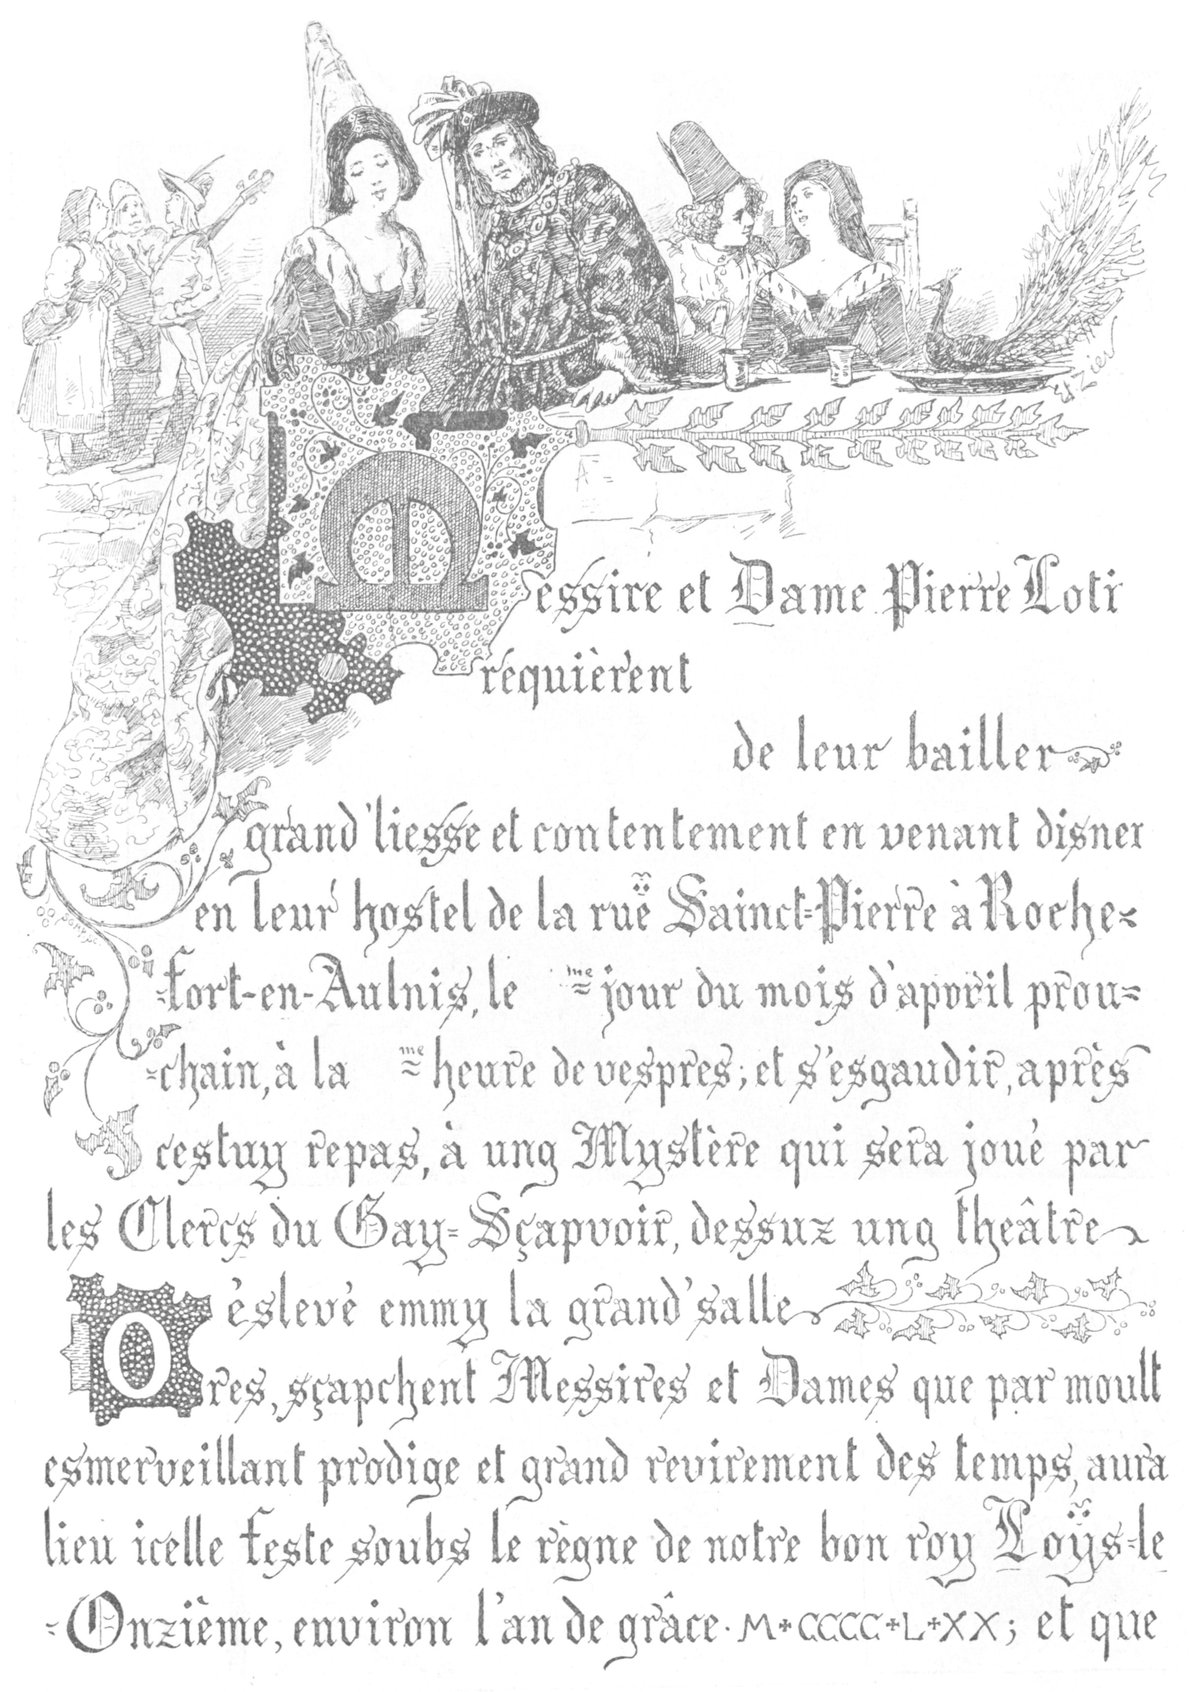 Messire et Dame Pierre Loti
requièrent
de leur bailler
grand'liesse et contentement en venant disner
en leur hostel de la ruë Sainct-Pierre à Roche-
-fort-en-Aulnis, le me jour du mois d'apvril prou-
-chain, à la me heure de vespres; et s'esgaudir, après
cestuy repas, à ung Mystère qui sera joué par
les Clercs du Gay-Sçapvoir, dessuz ung théâtre
èslevé emmy la grand'salle
Ores, sçapchent Messires et Dames que par moult
esmerveillant prodige et grand revirement des temps, aura
lieu icelle feste soubs le règne de notre bon roy Loÿs-le
-Onzième, environ l'an de grâce. M+CCCC+L+XX; et que